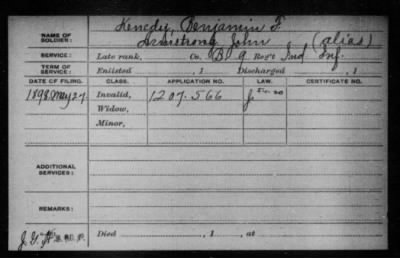 Kenedy, Benjamin F
NAME OF SOLDIER: Armstrong John (alias)
SERVICE: Late rank, Co. B 9 Reg't Ind Inf.
TERM OF SERVICE: Enlisted , 1 Discharged , 1
DATE OF FILING. CLASS. APPLICATION NO. LAW. CERTIFICATE NO.
1898 May 27 Invalid, 1207.566
Widow,
Minor,
ADDITIONAL SERVICES:
REMARKS:
Died , 1 , at